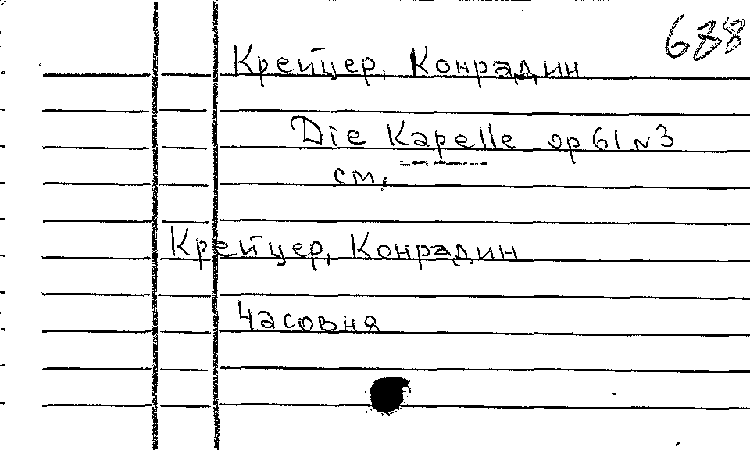 688
Крейцер, Конрадин
Die Kapelle op 61 N 3
см,
Крейцер, Конрадин
Часовня